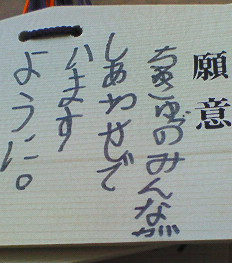 願意
ちきゅうのみんなが
しあわせで
います
ように。